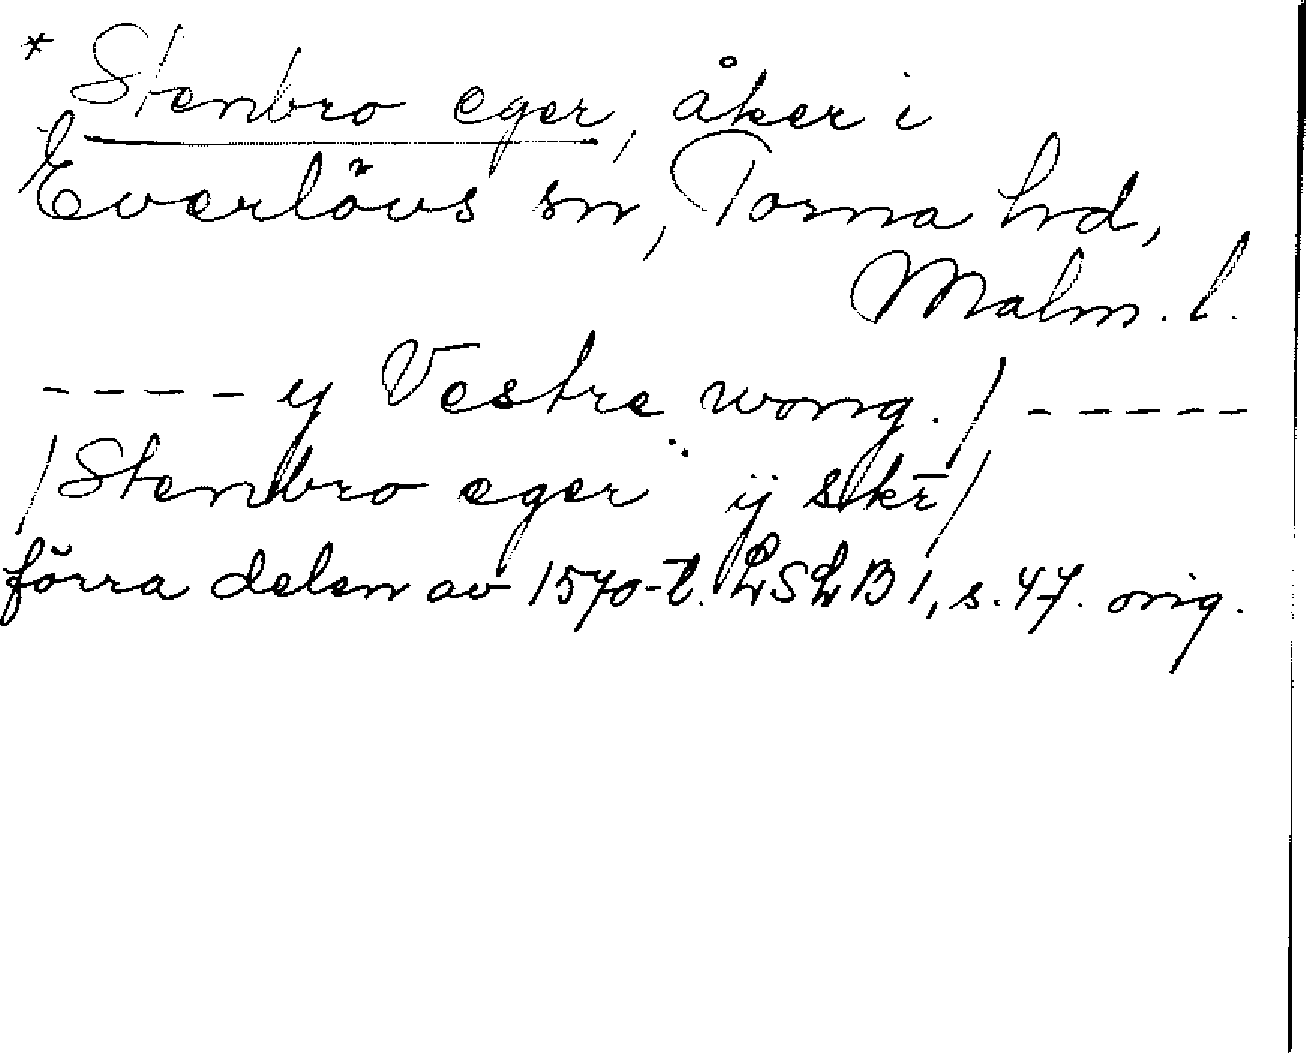 * Stenbro eger, åker i
Everlövs sn, Torna hd,
Malm. l.
- - - - y Vestre wong. / - - - - -
/ Stenbro eger ij skr̄ /
förra delen av 1570-t. LSLB 1, s. 47. orig.